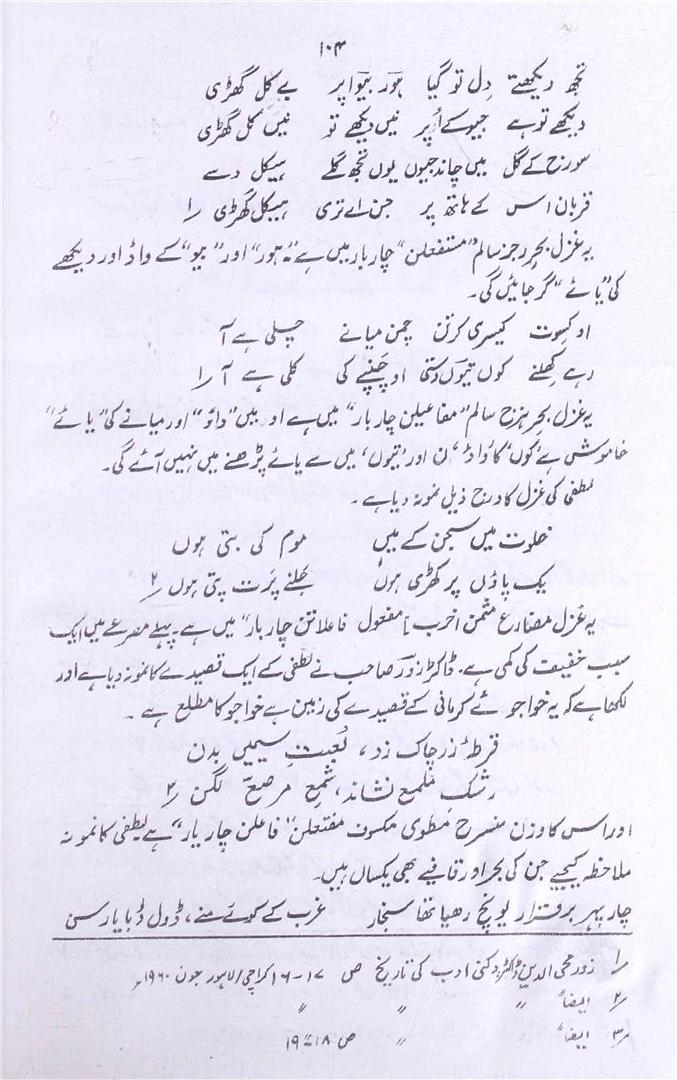 ۱۰۴
تجھ دیکھتے دِل تو گیا ہور بیوا پر بے کل گھڑی
دیکھے تو ہے جیو کے اُپر نیں دیکھے تو نیں کل گھڑی
سورج کے گل میں چاند جیوں یوں تجھ گلے ہیکل دسے
قربان اس کے ہاتھ پر جن اے تری ہیکل گھڑی ۱؎
یہ غزل بحرِ رجز سالم "مستفعلن" چار بار میں ہے۔ "ہور" اور "بیو" کے واؤ اور دیکھے
کی "یائے" گر جائیں گی۔
او کسوت کیسری کرتن چمن میانے چلی ہے آ
رہے کھلنے کوں تیوں دستی او چنپے کی کلی ہے آ ۱؎
یہ غزل بحرِ ہزج سالم "مفاعیلن چار بار" میں ہے او میں "واؤ" اور میانے کی "یائے"
خاموشی ہے کوں' کا واؤ' ن اور تیوں' میں سے یائے پڑھنے میں نہیں آئے گی۔
لطفی کی غزل کا درج ذیل نمونہ دیا ہے۔
خلوت میں سجن کے میں موم کی بتی ہوں
یک پاؤں پر کھڑی ہوں جلنے پرت پتی ہوں ۲؎
یہ غزل مضارع مثمن اخرب [مفعول فاعلاتن چار بار" میں ہے۔ پہلے مصرعے میں ایک
سبب خفیف کی کمی ہے۔ ڈاکٹر زور صاحب نے لطفی کے ایک قصیدے کا نمونہ دیا ہے اور
لکھا ہے کہ یہ خواجوئے کرمانی کے قصیدے کی زمین ہے خواجو کا مطلع ہے۔
قرطہٴ زر چاک زد، لُعبتِ سیمیں بدن
رشک ملمع نشاند، شمعِ مرصع لگن ۳؎
اور اس کا وزن منسرح مطوی مکسوف مفتعلن "فاعلن چار بار" ہے لطفی کا نمونہ
ملاحظہ کیجیے جن کی بحر اور قافیے بھی یکساں ہیں۔
چار پہر برقرار لونچ رھیا تھا سنجار غرب کے کوئے منے، ڈول ڈبا یارسی
۱؎ زور محی الدین ڈاکٹر، دکنی ادب کی تاریخ ص ۱۷-۱۶ کراچی/لاہور جون ۱۹۶۰ء
۲؎ ایضاً " " "
۳؎ ایضاً " ص ۱۸ تا ۱۹